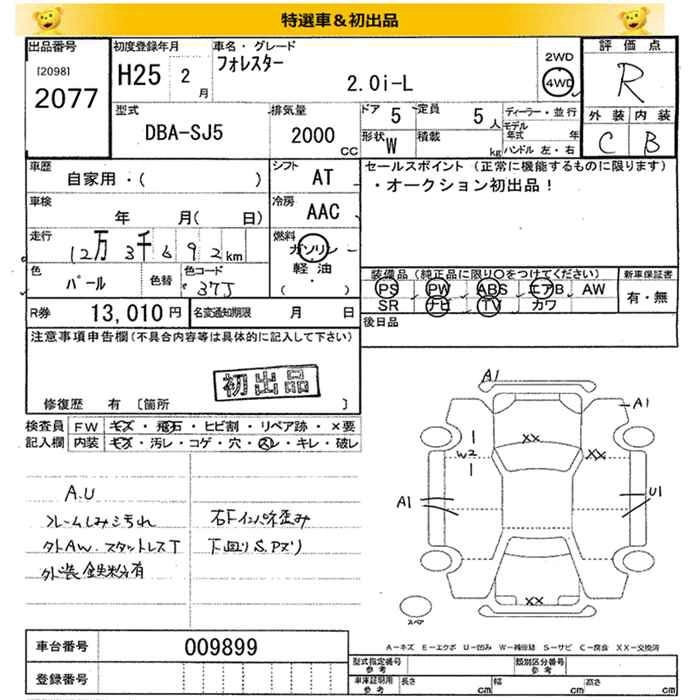 特選車＆初出品
出品番号
[2098]
2077
初度登録年月
H25 2 月
車名・グレード
フォレスター
2.0i-L
2WD
4WD
評価点
R
外装 内装
C B
型式
DBA-SJ5
排気量
2000 CC
ドア 5
定員 5 人
形状 W
積載 kg
ディーラー・並行
モデル年式 年
ハンドル 左・右
車歴
自家用・( )
シフト AT
セールスポイント (正常に機能するものに限ります)
・オークション初出品！
車検
年 月( 日)
冷房 AAC
走行
12万3千692km
燃料
ガソリン
軽油
( ・ )
色
パール
色替
色コード
37J
装備品 (純正品に限り○をつけてください)
PS PW ABS エアB AW
SR ナビ TV カワ
新車保証書
有・無
R券 13,010 円
名変通知期限 月 日
後日品
注意事項申告欄 (不具合内容等は具体的に記入して下さい)
初出品
修復歴 有 [箇所 ]
検査員記入欄
FW キズ・飛石・ヒビ割・リペア跡・×要
内装 キズ・汚レ・コゲ・穴・スレ・キレ・破レ
A.U
フレームしみ汚れ
タトAW.スタットレスT
外装鉄粉有
右F インパネ歪み
下回りS.アズリ
A1
A1
XX
W2
XX
A1
U1
XX
スペア
A－キズ E－エクボ U－凹み W－補修跡 S－サビ C－腐食 XX－交換済
車台番号 009899
登録番号
型式指定番号 参考
類別区分番号 参考
車庫証明用 参考
長さ cm 幅 cm 高さ cm